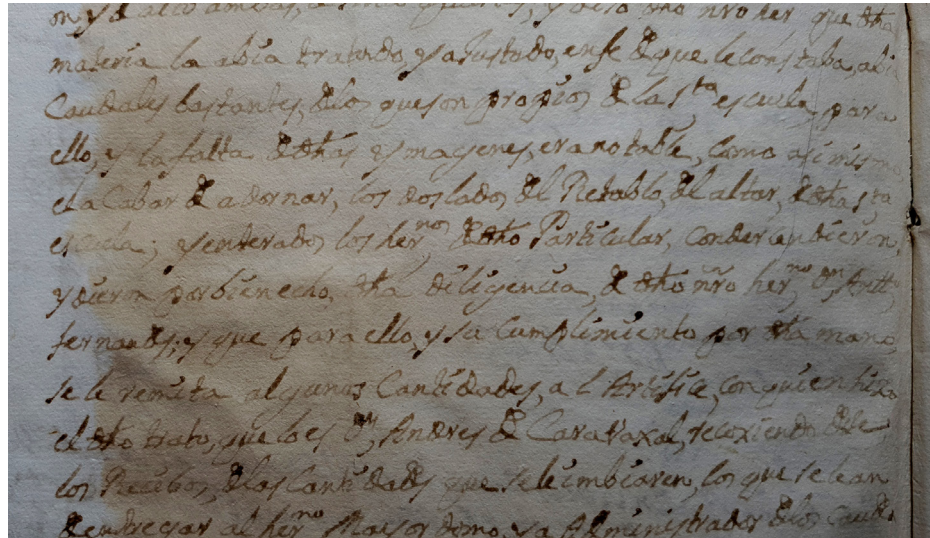 on y
nro her que dho
materia la abia tratado, y ajustado, en fe de que le constaba, abi
Caudales bastantes, de los que son propios de la sta escuela para
ello, y la falta de dhas ymagenes, era notable, como asimismo
el a Cabar de adornar, los dos lados del Retablo, del altar, de dha sta
escuela; y enterados los hernos de dho Particular, Condescendieron,
y dieron por bien echo, dha diligencia, de dho nro herno Dn Antto
fernands; y que para ello, y su Cumplimiento por dha mano,
se le remita algunas Cantidades, a l Artifise, con quien hizo
el dho trato, que lo es Dn Andres de Caravaxal, recoxiendo dele
los Recibos, de las Cantidades que se le imbiaren, los que se le an
de endregar al herno Maior domo, y a Administrador de los Caud